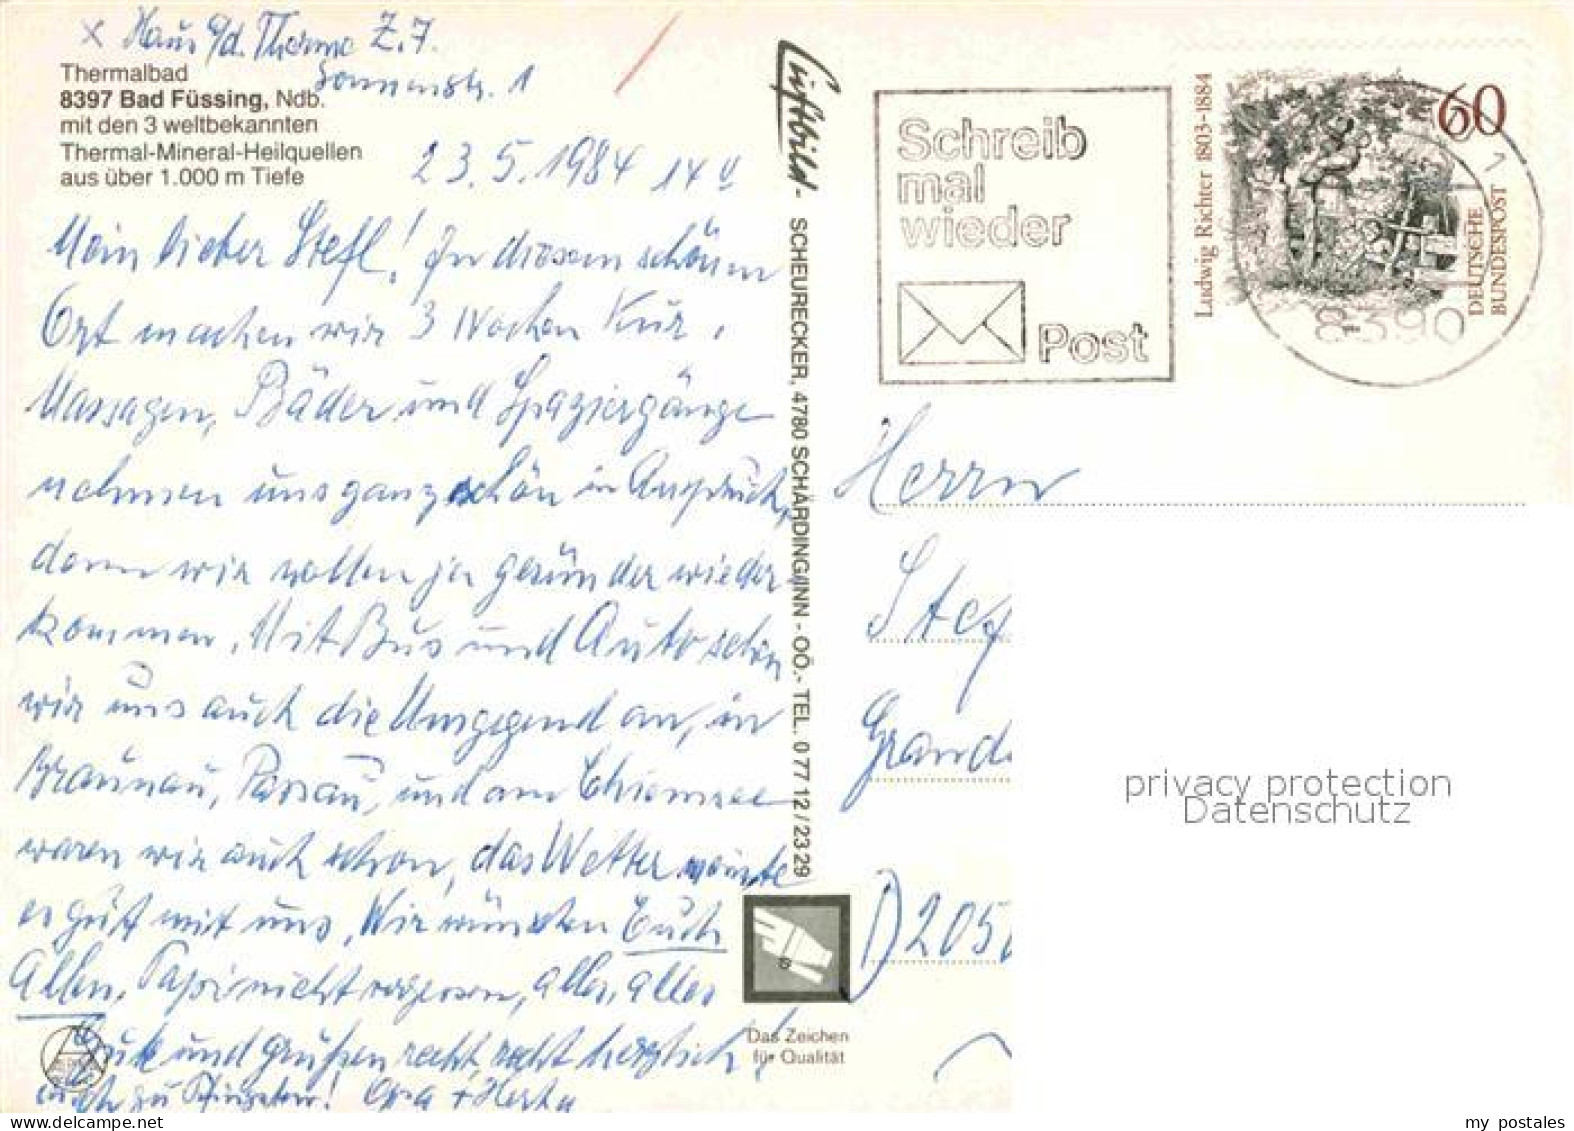 x Haus a/d. Therme Z. 7.
Sonnenstr. 1
Thermalbad
8397 Bad Füssing, Ndb.
mit den 3 weltbekannten
Thermal-Mineral-Heilquellen
aus über 1.000 m Tiefe
23.5.1984 14 U
Mein lieber Stefl! In diesem schönen
Ort machen wir 3 Wochen Kur,
Massagen, Bäder und Spaziergänge
nehmen uns ganz schön in Anspruch,
denn wir wollen ja gesünder wieder
kommen. Mit Bus und Auto sehen
wir uns auch die Umgegend an, in
Braunau, Passau, und am Chiemsee
waren wir auch schon, das Wetter meinte
es gut mit uns. Wir wünschen Euch
allen, Papi nicht vergessen, alles, alles
Gute und grüßen recht, recht herzlich
auch zu Pfingsten! Opa + Herta
Luftbild-
SCHEURECKER, 4780 SCHÄRDING/INN - OÖ.- TEL. 0 77 12 / 23 29
Das Zeichen
für Qualität
Schreib
mal
wieder
Post
Ludwig Richter 1803-1884
60
DEUTSCHE
BUNDESPOST
8390
Herrn
Stef
Grand
D 205
privacy protection
Datenschutz
my postales